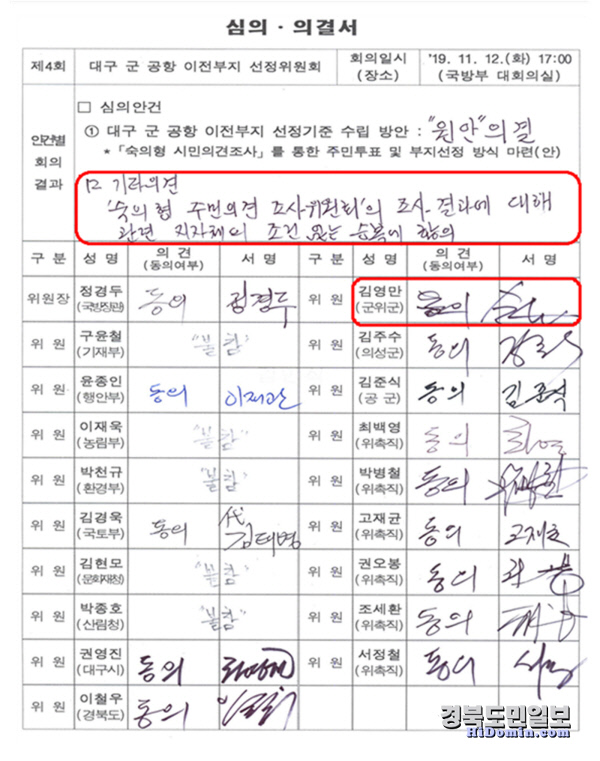 심의·의결서
제4회 대구 군 공항 이전부지 선정위원회 회의일시 (장소) '19. 11. 12.(화) 17:00 (국방부 대회의실)
안건별 회의 결과
□ 심의안건
① 대구 군 공항 이전부지 선정기준 수립 방안 : "원안"의결
* 「숙의형 시민의견조사」를 통한 주민투표 및 부지선정 방식 마련(안)
□ 기타의견
'숙의형 주민의견 조사위원회'의 조사 결과에 대해
관련 지자체의 조건 없는 승복에 합의
구 분 성 명 의 견 (동의여부) 서 명 구 분 성 명 의 견 (동의여부) 서 명
위원장 정경두 (국방장관) 동의 정경두 위 원 김영만 (군위군) 동의
위 원 구윤철 (기재부) "불참" 위 원 김주수 (의성군) 동의
위 원 윤종인 (행안부) 동의 이재관 위 원 김준식 (공 군) 동의 김준식
위 원 이재욱 (농림부) "불참" 위 원 최백영 (위촉직) 동의
위 원 박천규 (환경부) "불참" 위 원 박병철 (위촉직) 동의
위 원 김경욱 (국토부) 동의 代 김태병 위 원 고재균 (위촉직) 동의
위 원 김현모 (문화재청) "불참" 위 원 권오봉 (위촉직) 동의
위 원 박종호 (산림청) "불참" 위 원 조세환 (위촉직) 동의
위 원 권영진 (대구시) 동의 위 원 서정철 (위촉직) 동의
위 원 이철우 (경북도) 동의
경북도민일보
HiDomin.com